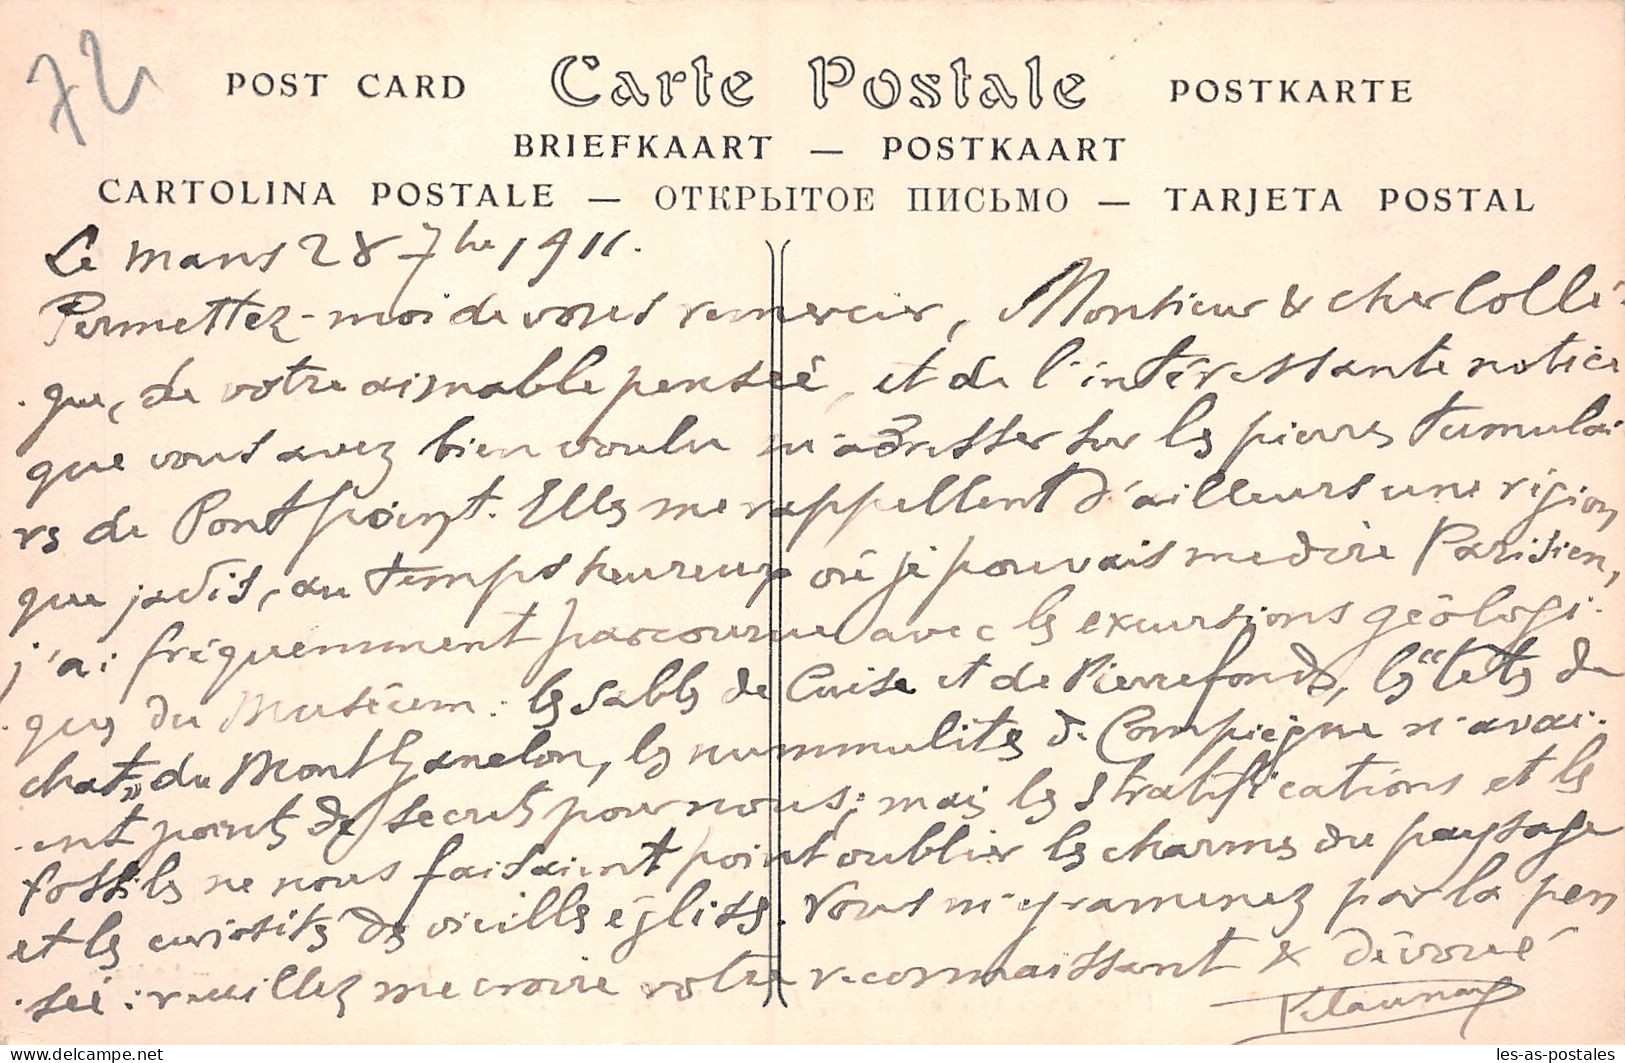 72
POST CARD Carte Postale POSTKARTE
BRIEFKAART — POSTKAART
CARTOLINA POSTALE — ОТКРЫТОЕ ПИСЬМО — TARJETA POSTAL
Le Mans 28 7bre 1911.
Permettez-moi de vous remercier, Monsieur & cher Collè-
gue, de votre aimable pensée, et de l'intéressante notice
que vous avez bien voulu m'adresser sur les pierres tumulai
res de Pontpoint. Elles me rappellent d'ailleurs une région
que jadis, au temps heureux où je pouvais me dire Parisien,
j'ai fréquemment parcourue avec les excursions géologi-
ques du Muséum : les sables de Cuise et de Pierrefonds, les "têtes de
chat" du Mont Ganelon, les nummulites de Compiègne n'avai-
ent point de secrets pour nous ; mais les stratifications et les
fossiles ne nous faisaient point oublier les charmes du paysage
et les curiosités des vieilles églises. Vous m'y ramenez par la pen
sée : veuillez me croire votre reconnaissant & dévoué
les-as-postales